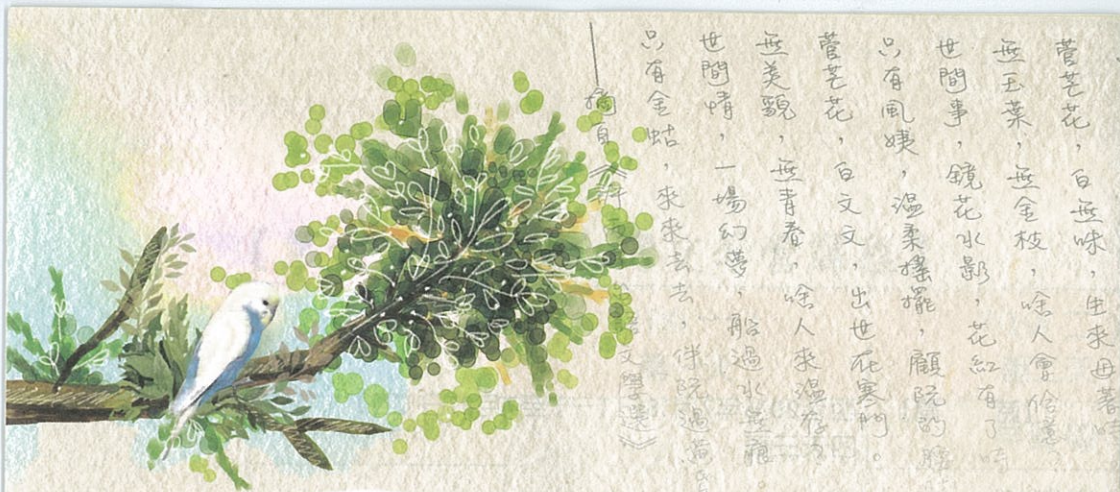 菅芒花，白無味，出來毋
無玉葉，無金枝，啥人會
世間事，鏡花水影，花紅有了時
只有風姨，溫柔搖擺，顧阮的
菅芒花，白文文，出世在寒門。
無美貌，無青春，啥人來溫存
世間情，一場幻夢，船過水無痕。
只有金蛄，來來去去，伴阮過
摘自《許文學選》